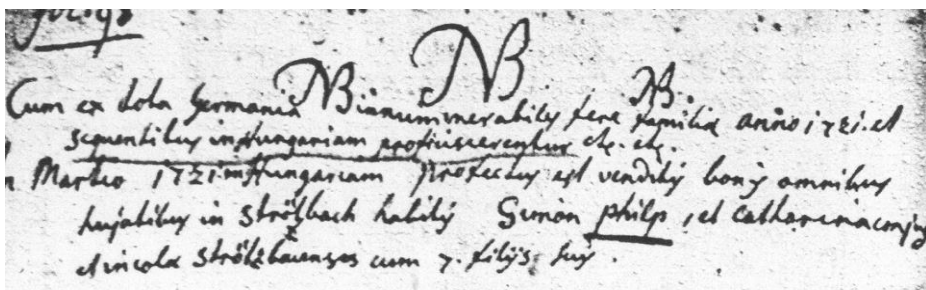 NB NB NB.
Cum ex tota Germania innumerabiles fere familiae anno 1721. et
sequentibus in Hungariam proficiscerentur etc. etc.
Martio 1721 in Hungariam profectus est venditis bonis omnibus
hujatibus in Strötzbach habitis Simon philp, et Catharina conjux
et incolae Strötzbacenses cum 7. filijs suis.